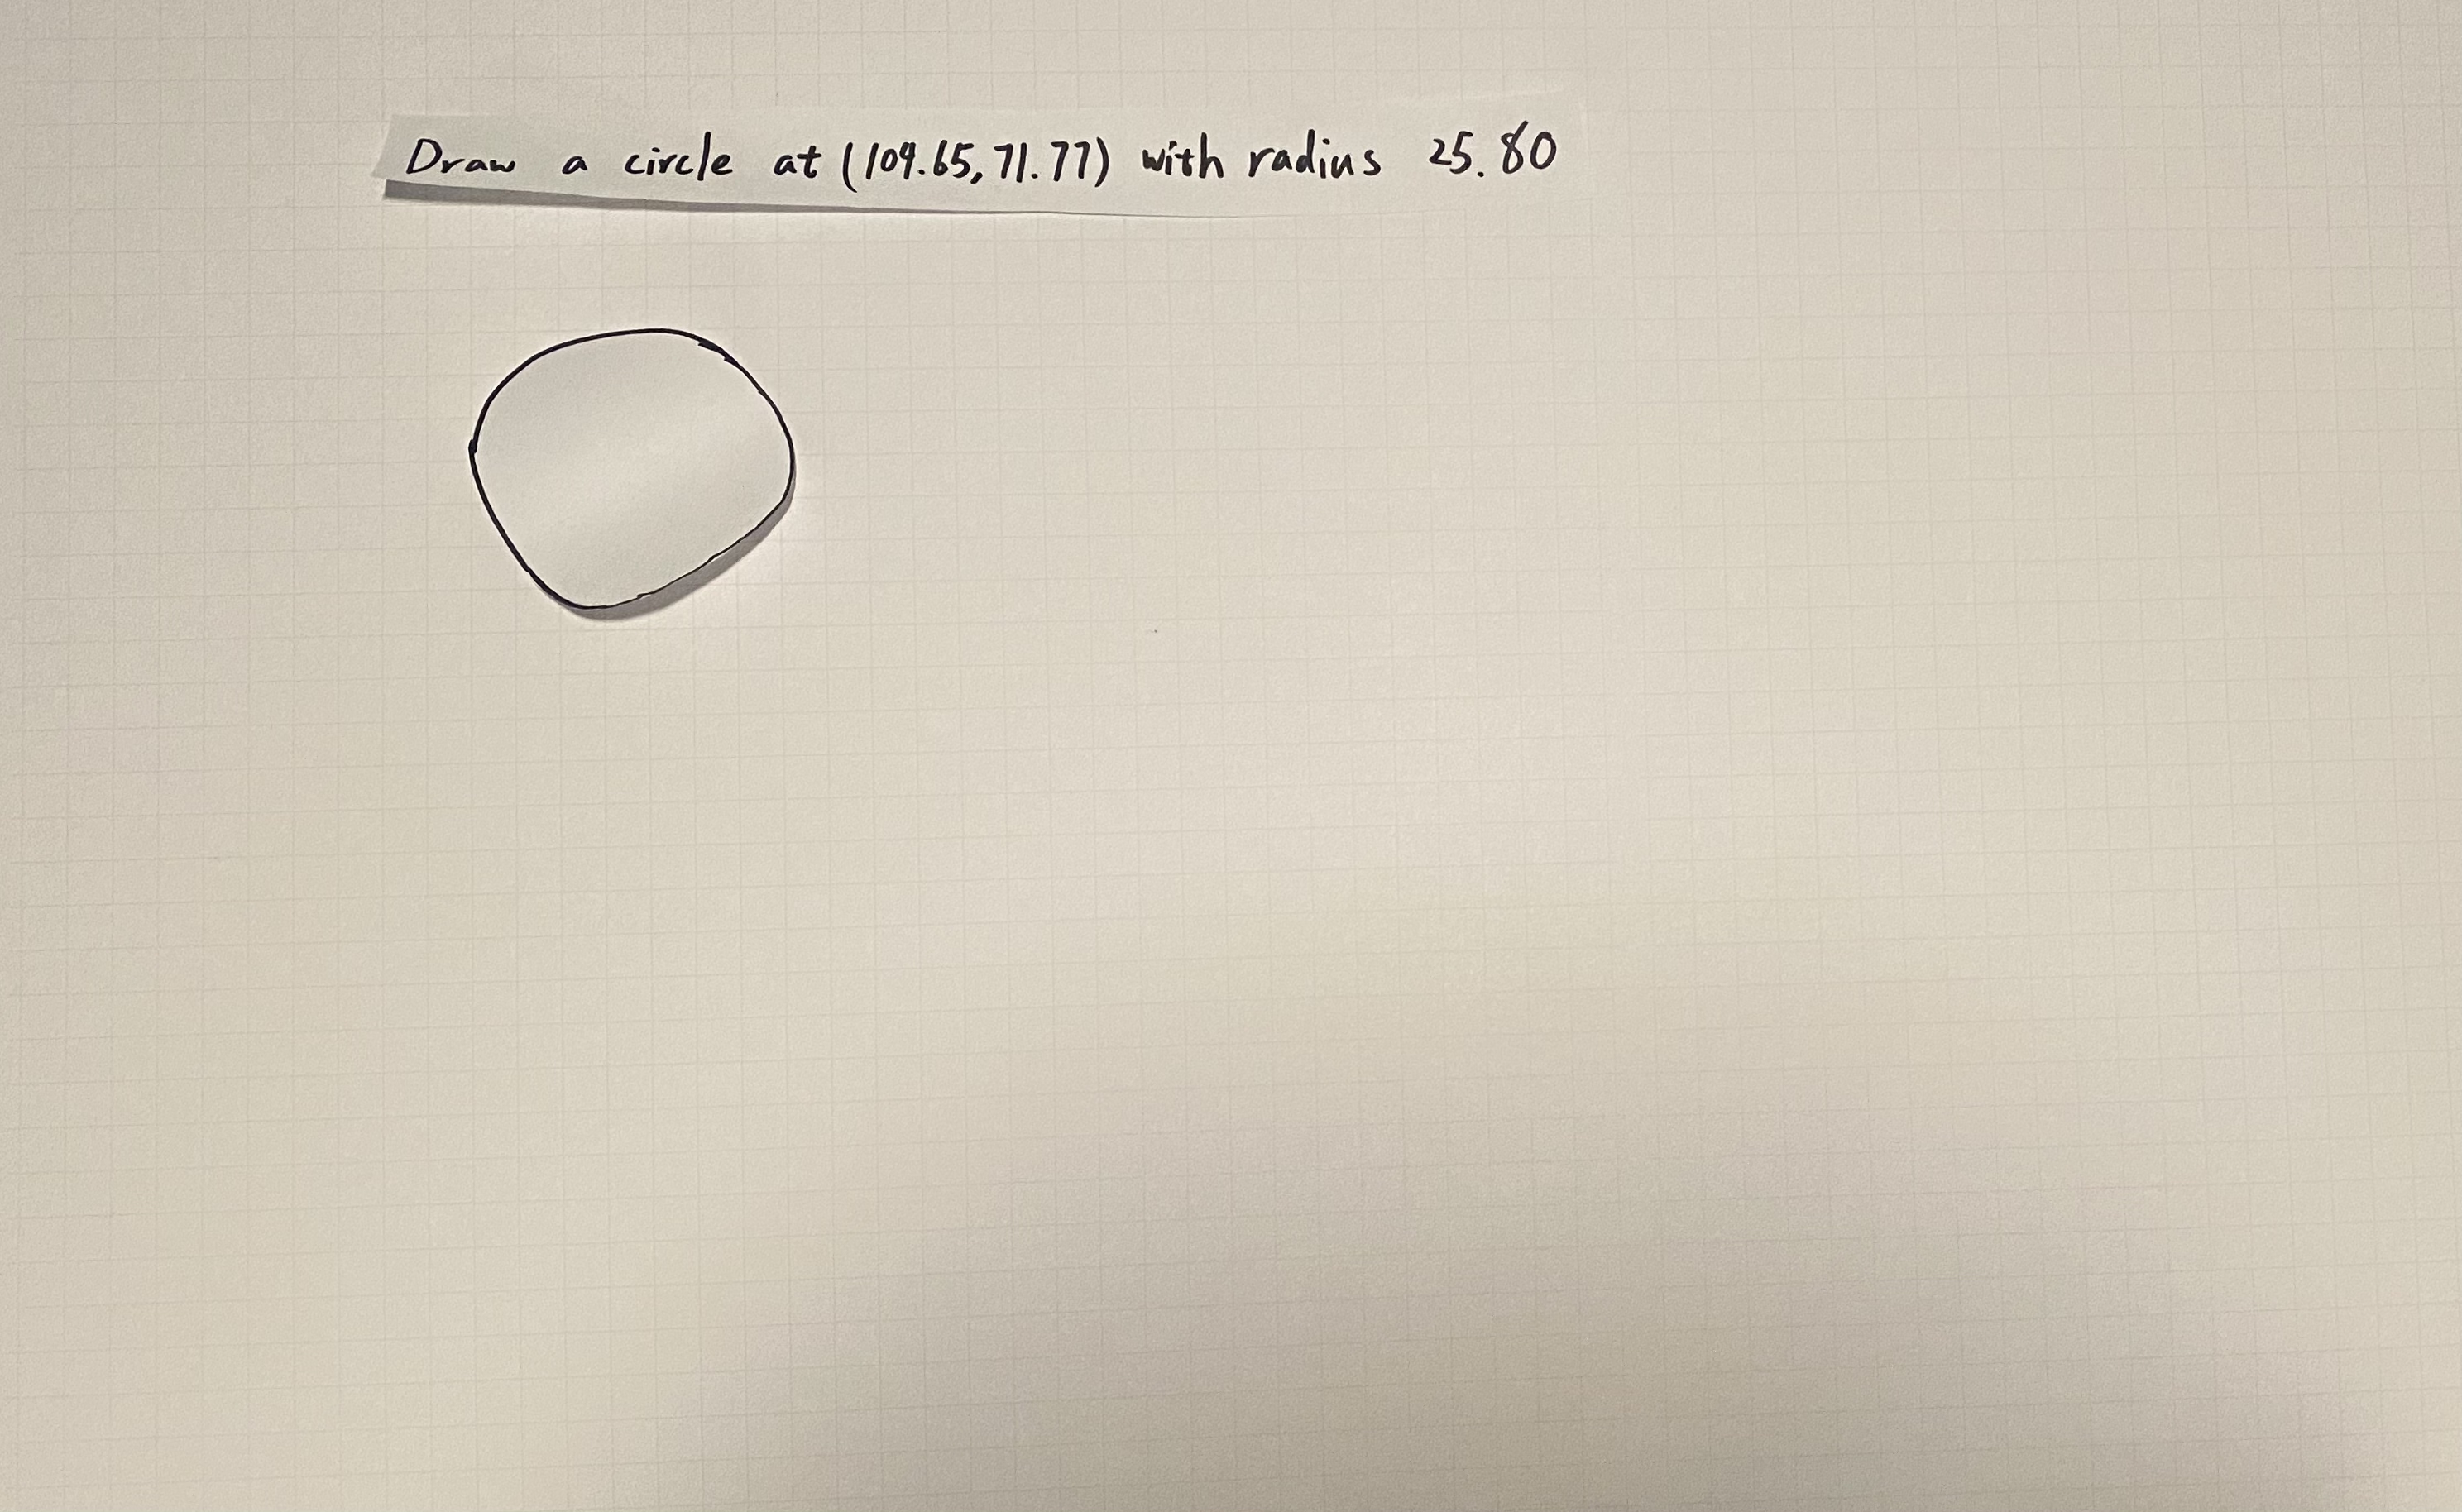 Draw a circle at (109.65, 71.77) with radius 25.80